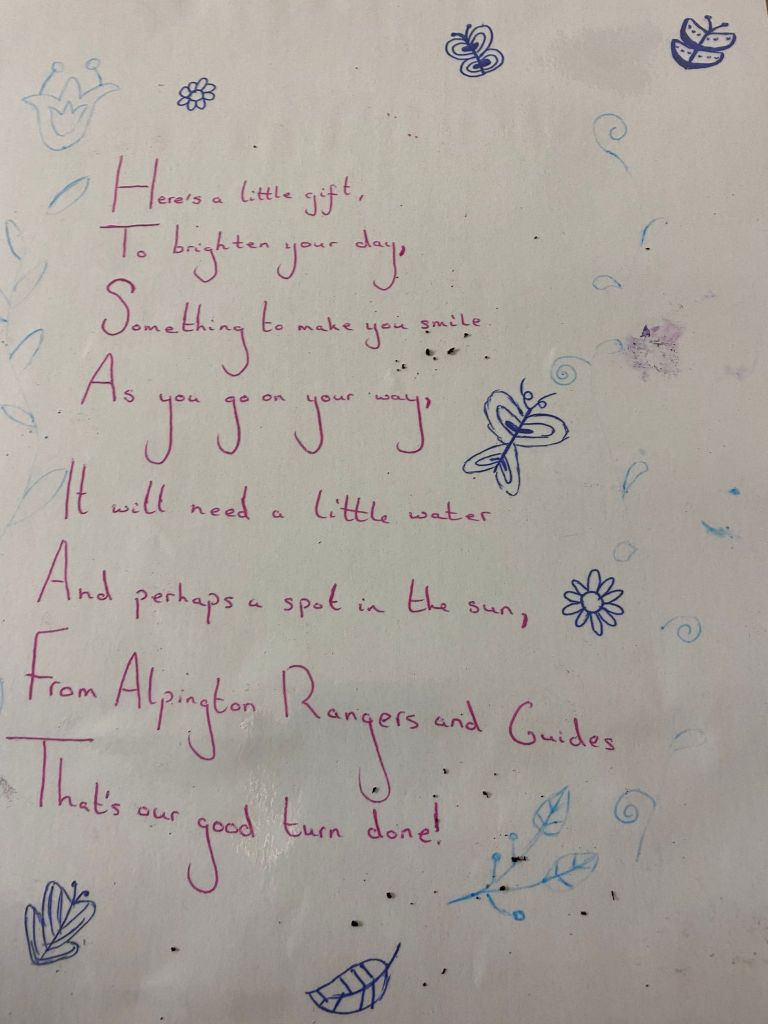 Here's a little gift,
To brighten your day,
Something to make you smile
As you go on your way,
It will need a little water
And perhaps a spot in the sun,
From Alpington Rangers and Guides
That's our good turn done!